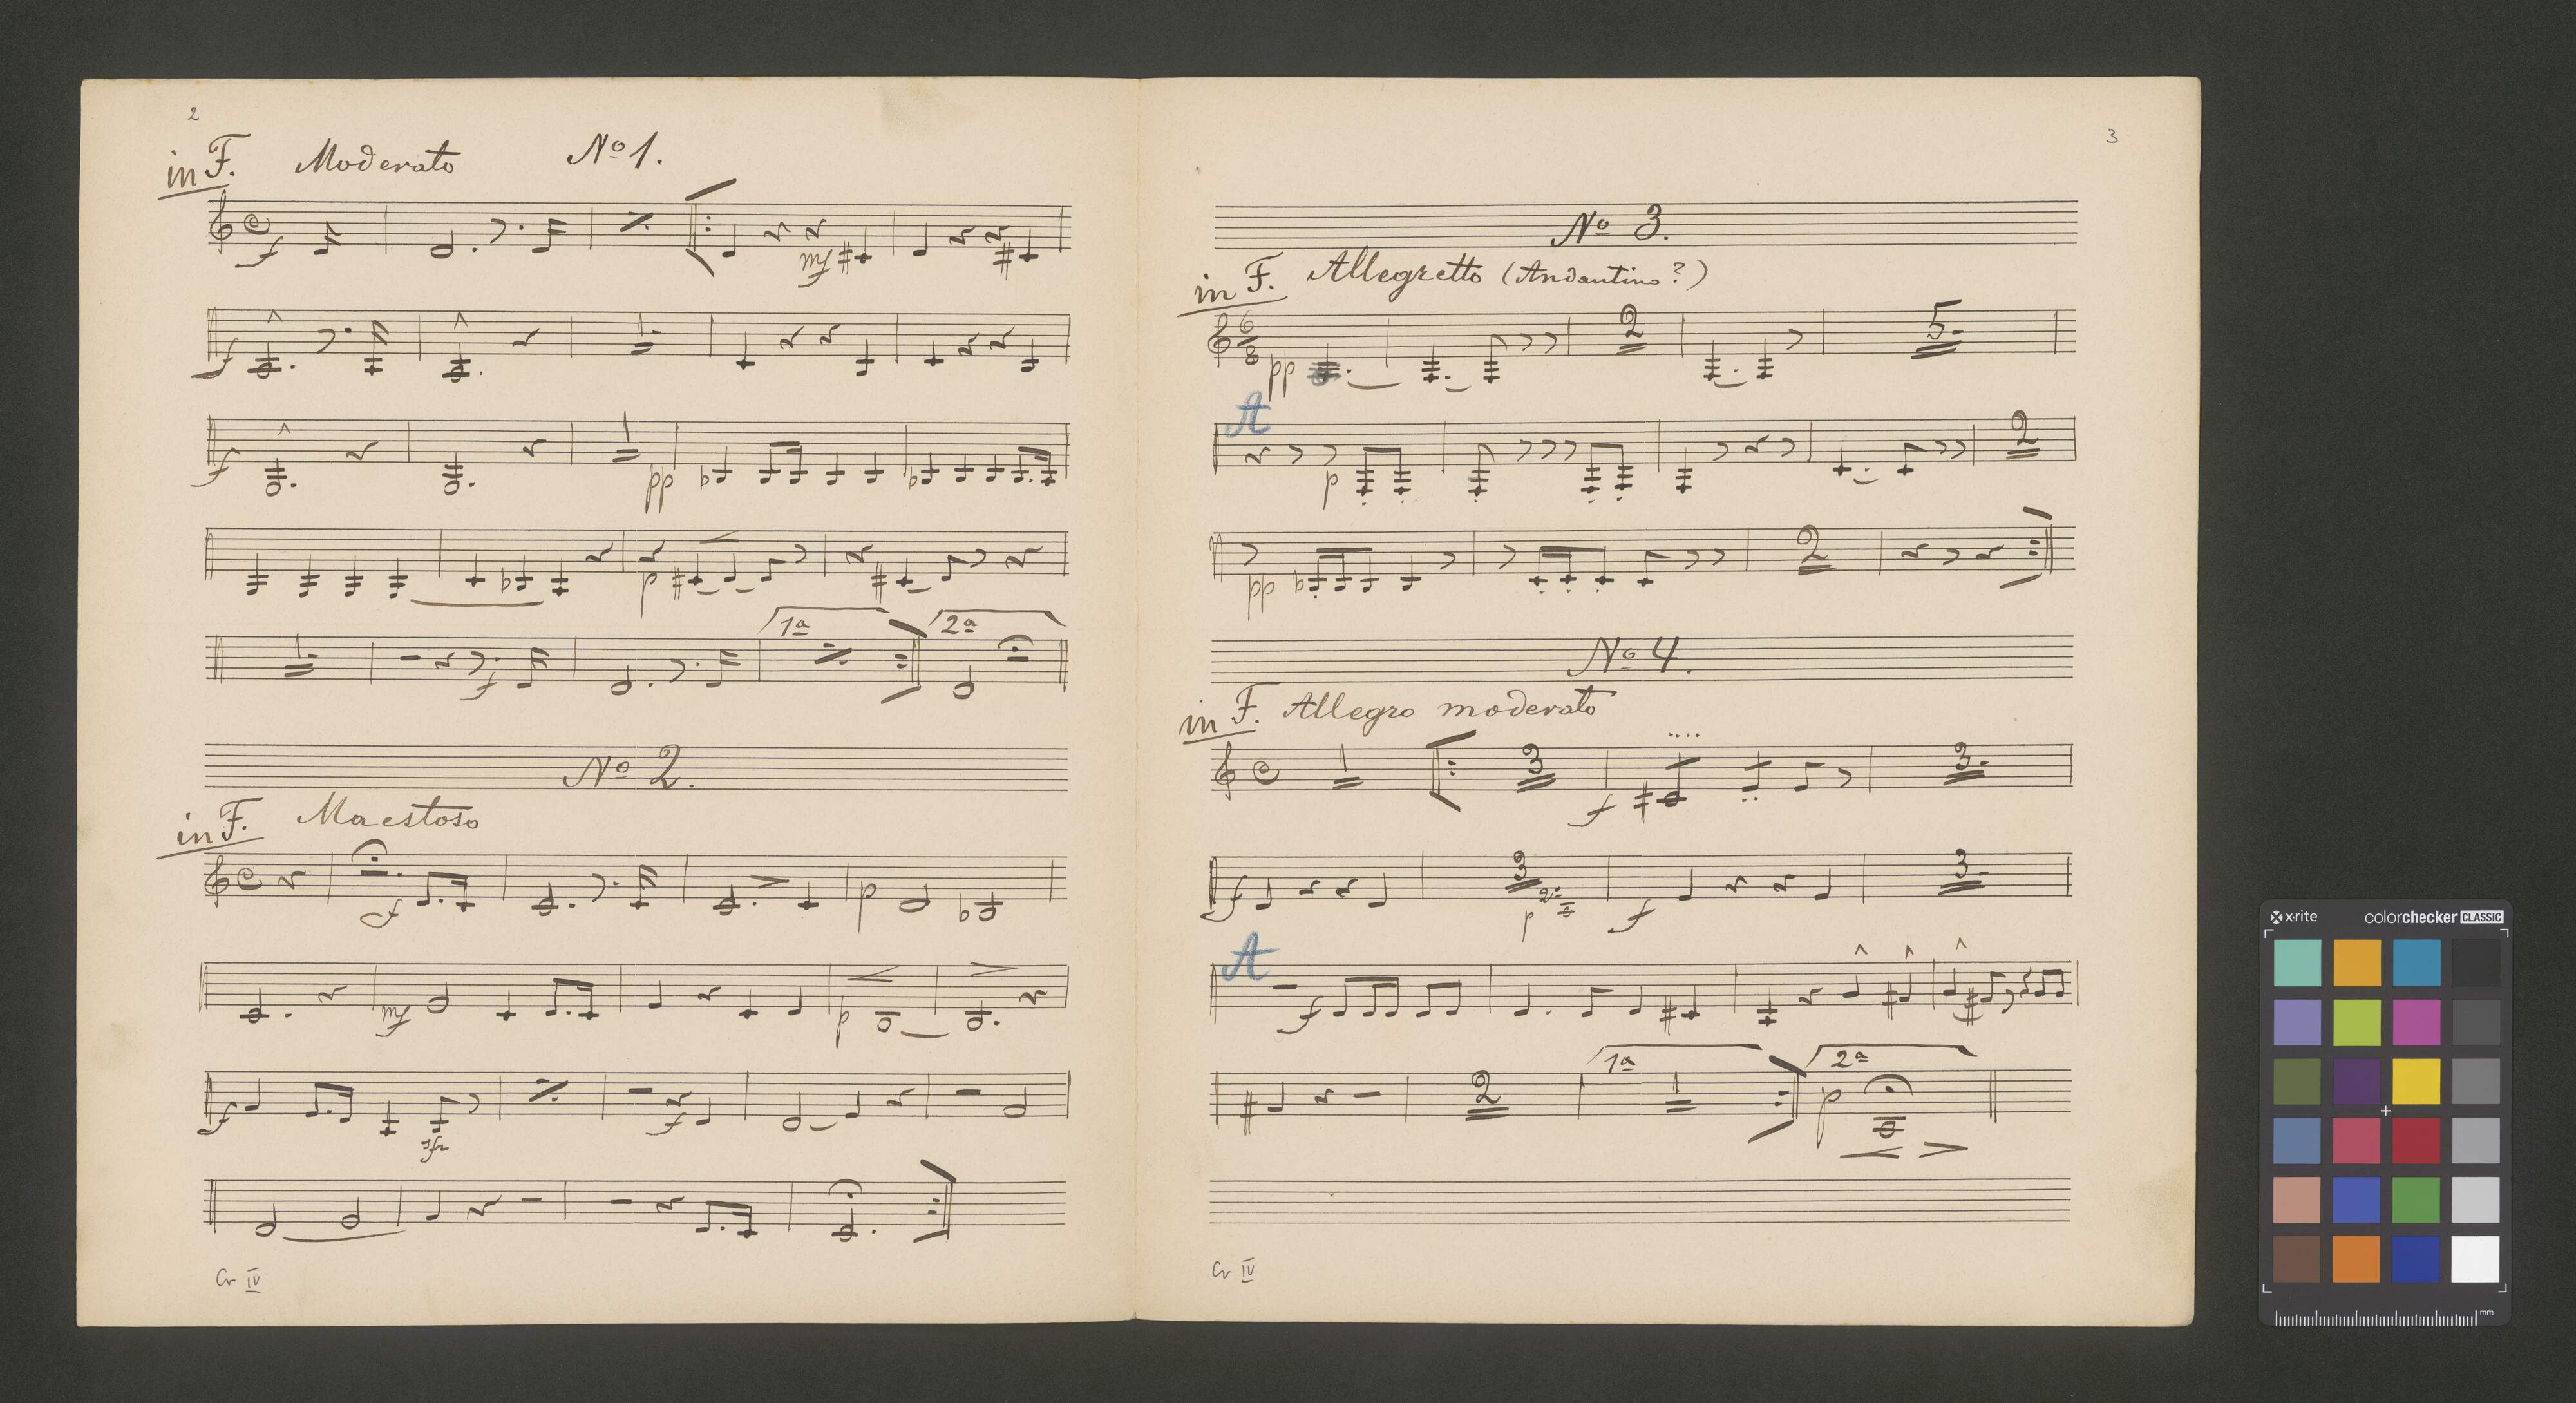 2
in F. Moderato No 1.
f
mf
f
f
pp
p
1.
f
1a 2a
No 2.
in F. Maestoso
f p
mf p
f sfz f
Cr IV
3
No 3.
in F. Allegretto (Andantino?)
6
8
pp 2 5.
A
p 2
pp 2
No 4.
in F. Allegro moderato
1 3 f 3.
f 3 p f 3.
A
f
2 1a 1 2a p
Cr IV
x-rite colorchecker CLASSIC
mm